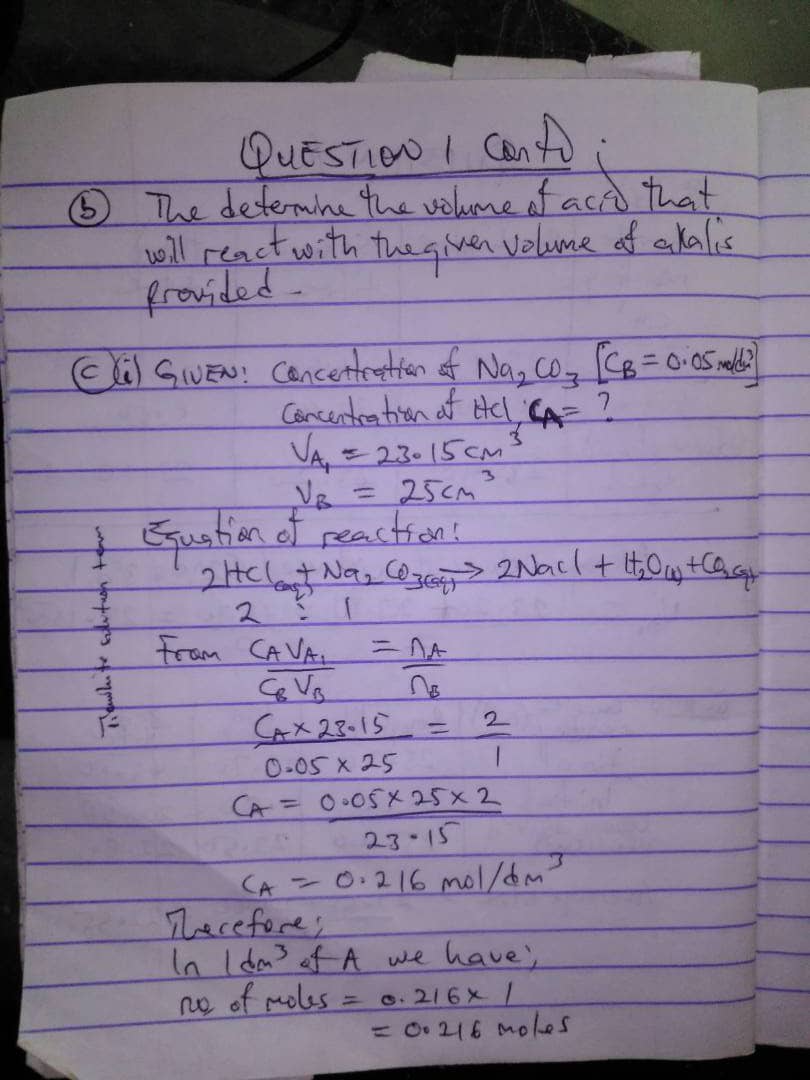 QUESTION 1 Contd ;
(b) The determine the volume of acid that
will react with the given volume of akalis
provided -
(C)(i) GIVEN: Concentration of Na₂CO₃ [CB = 0.05 mol/dm³]
Concentration of Hcl, CA = ?
VA₁ = 23.15cm³
VB = 25cm³
Equation of reaction:
2Hcl(aq) + Na₂CO₃(aq) → 2Nacl + H₂O(l) + CO₂(g)
2 : 1
From CAVA₁ = nA
CBVB nB
CA × 23.15 = 2
0.05 × 25 1
CA = 0.05 × 25 × 2
23.15
CA = 0.216 mol/dm³
Therefore;
In 1dm³ of A we have;
no of moles = 0.216 × 1
= 0.216 moles
solution team